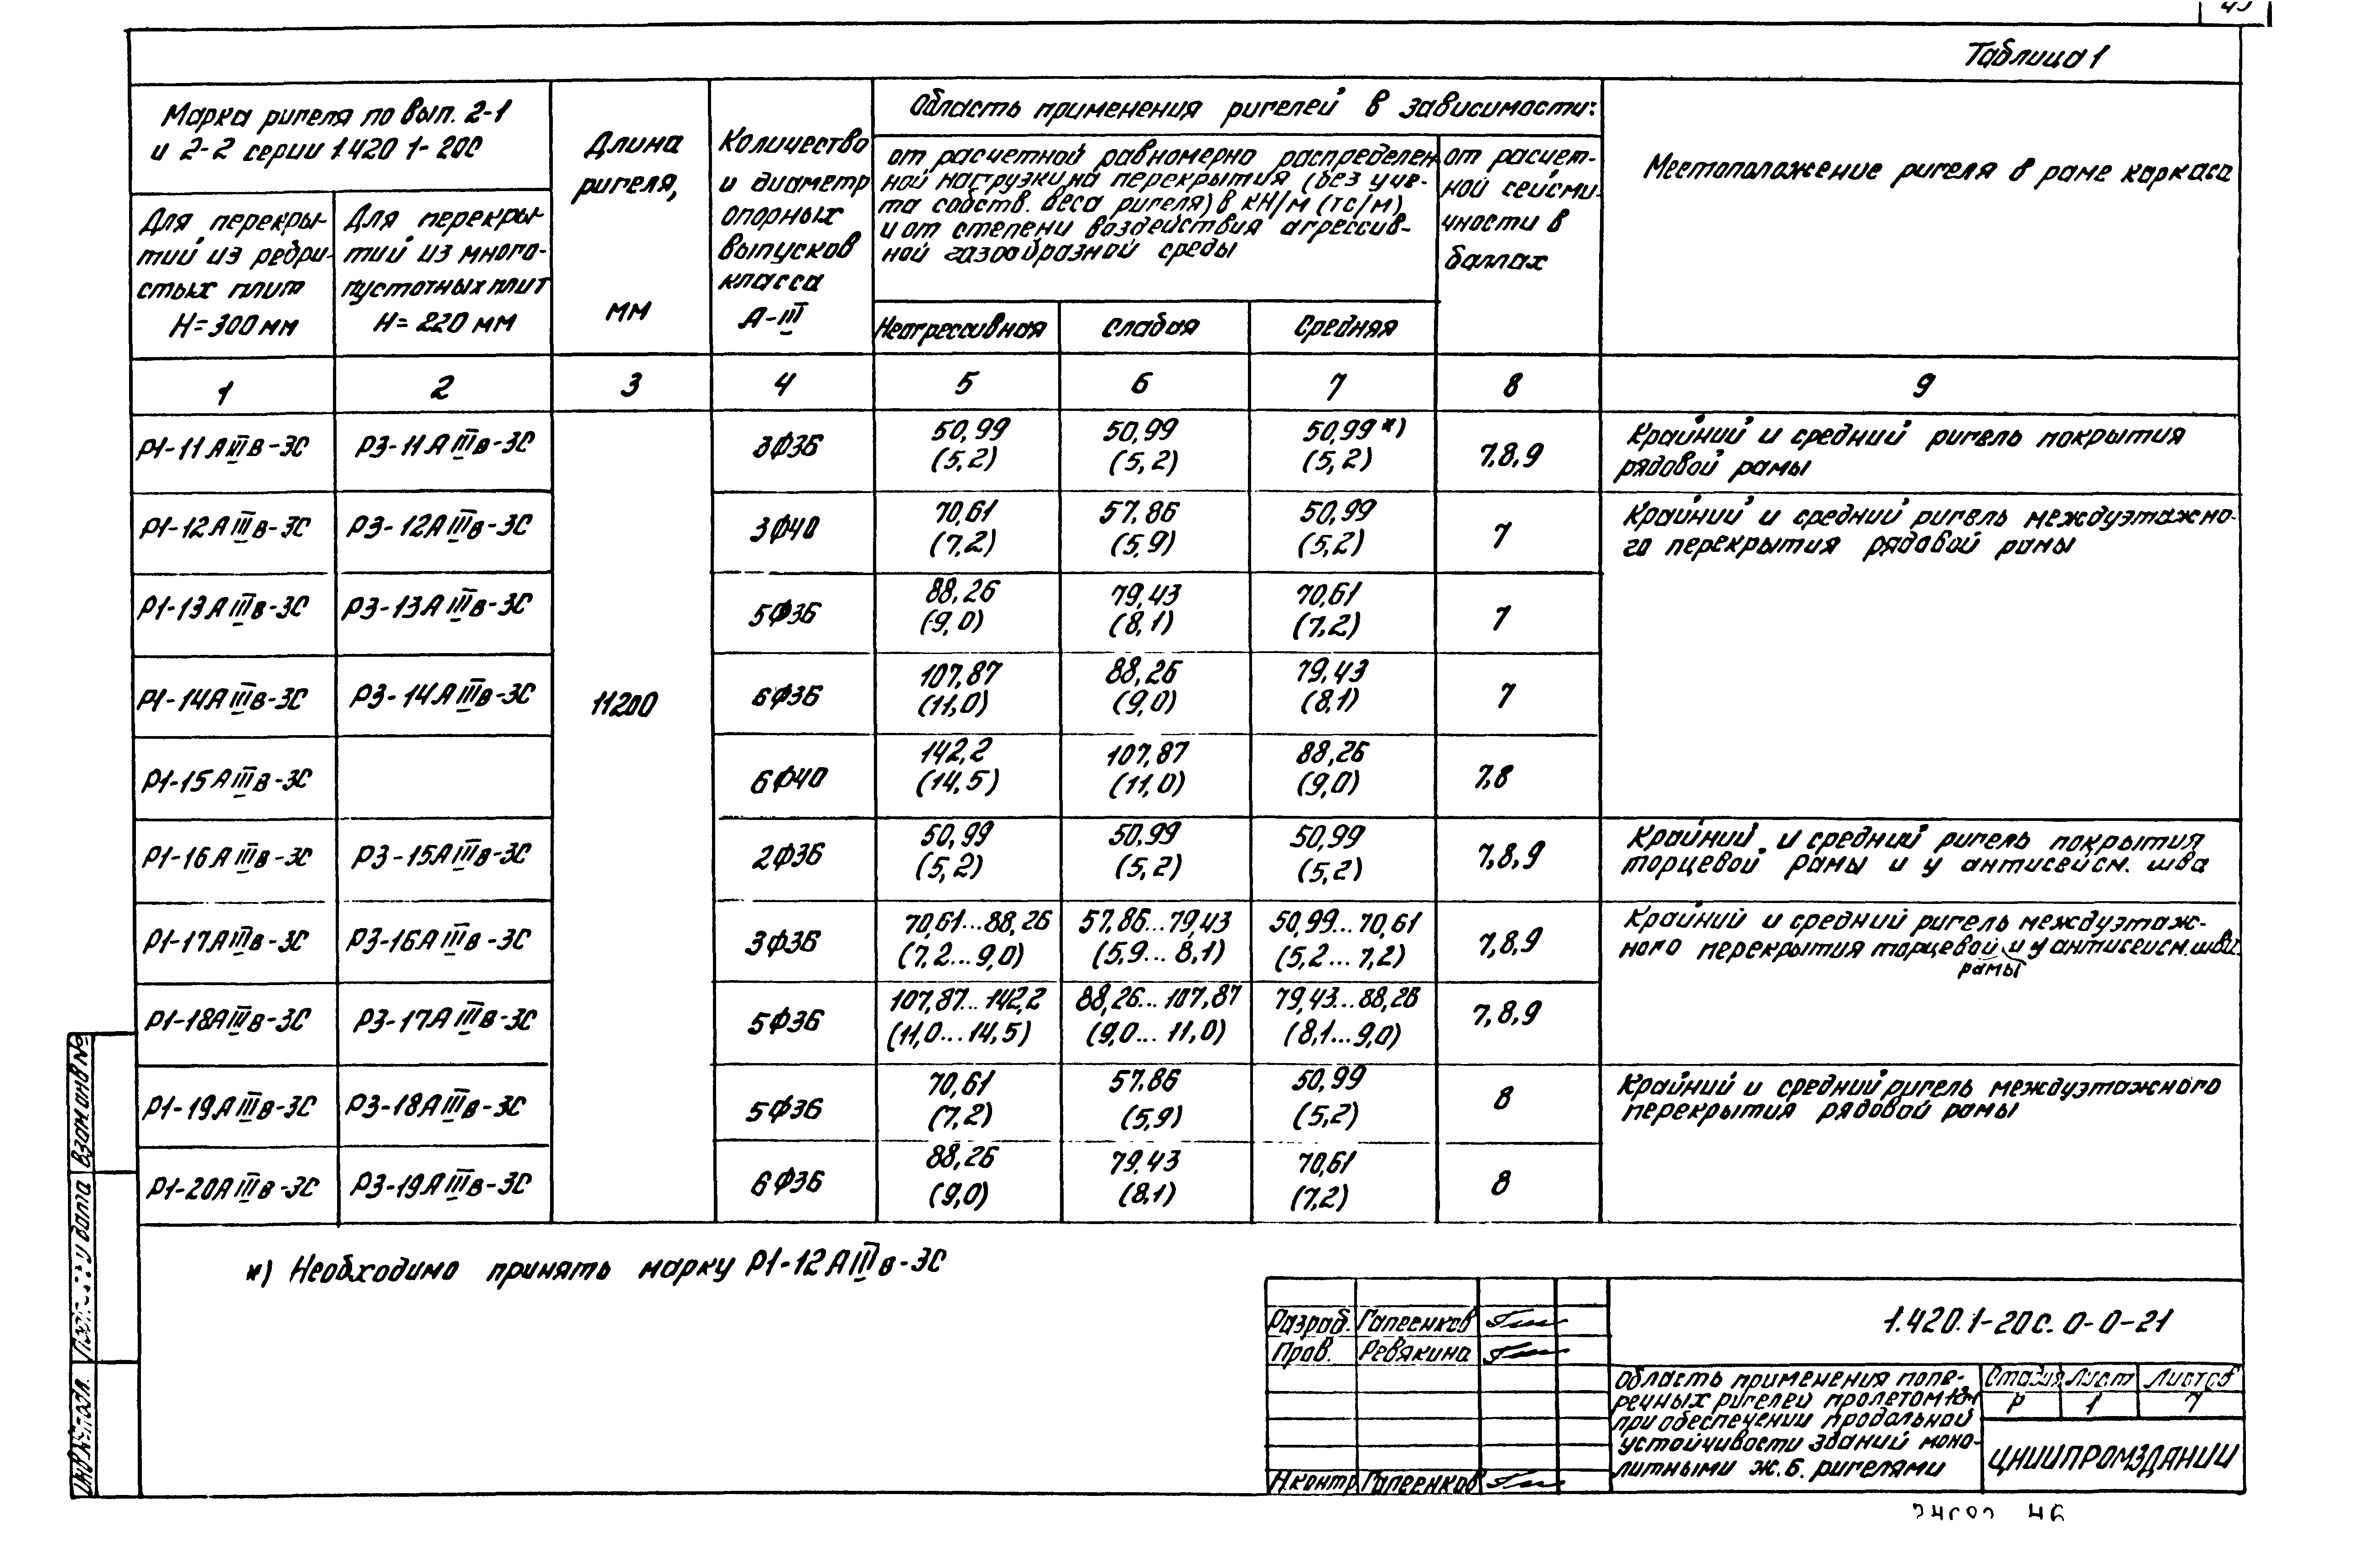 Таблица 1
Марка ригеля по вып. 2-1
и 2-2 серии 1.420 1-20С
Для перекры-
тий из ребри-
стых плит
Н=300 мм
Для перекры-
тий из много-
пустотных плит
Н= 220 мм
Длина
ригеля,
мм
Количество
и диаметр
опорных
выпусков
класса
А-III
Область применения ригелей в зависимости:
от расчетной равномерно распределен-
ной нагрузки на перекрытия (без уче-
та собств. веса ригеля) в кН/м (тс/м)
и от степени воздействия агрессив-
ной газообразной среды
Неагрессивная
Слабая
Средняя
от расчет-
ной сейсми-
чности в
баллах
Местоположение ригеля в раме каркаса
1 2 3 4 5 6 7 8 9
Р1-11АIIIв-3С Р3-11АIIIв-3С 3Ф36 50,99 (5,2) 50,99 (5,2) 50,99 *) (5,2) 7,8,9
Крайний и средний ригель покрытия
рядовой рамы
Р1-12АIIIв-3С Р3-12АIIIв-3С 3Ф40 70,61 (7,2) 57,86 (5,9) 50,99 (5,2) 7
Крайний и средний ригель междуэтажно-
го перекрытия рядовой рамы
Р1-13АIIIв-3С Р3-13АIIIв-3С 5Ф36 88,26 (9,0) 79,43 (8,1) 70,61 (7,2) 7
Р1-14АIIIв-3С Р3-14АIIIв-3С 11200 6Ф36 107,87 (11,0) 88,26 (9,0) 79,43 (8,1) 7
Р1-15АIIIв-3С 6Ф40 142,2 (14,5) 107,87 (11,0) 88,26 (9,0) 7,8
Р1-16АIIIв-3С Р3-15АIIIв-3С 2Ф36 50,99 (5,2) 50,99 (5,2) 50,99 (5,2) 7,8,9
Крайний и средний ригель покрытия
торцевой рамы и у антисейсм. шва
Р1-17АIIIв-3С Р3-16АIIIв-3С 3Ф36 70,61...88,26 (7,2...9,0) 57,86...79,43 (5,9...8,1) 50,99...70,61 (5,2...7,2) 7,8,9
Крайний и средний ригель междуэтаж-
ного перекрытия торцевой и у антисейсм. шва
рамы
Р1-18АIIIв-3С Р3-17АIIIв-3С 5Ф36 107,87...142,2 (11,0...14,5) 88,26...107,87 (9,0...11,0) 79,43...88,26 (8,1...9,0) 7,8,9
Р1-19АIIIв-3С Р3-18АIIIв-3С 5Ф36 70,61 (7,2) 57,86 (5,9) 50,99 (5,2) 8
Крайний и средний ригель междуэтажного
перекрытия рядовой рамы
Р1-20АIIIв-3С Р3-19АIIIв-3С 6Ф36 88,26 (9,0) 79,43 (8,1) 70,61 (7,2) 8
*) Необходимо принять марку Р1-12АIIIв-3С
Взам.инв№
и дата
Инв№подл.
Разраб. Гапеенков
Пров. Ревякина
Н.контр Гапеенков
1.420.1-20с. 0-0-21
Область применения попе-
речных ригелей пролетом 12м
при обеспечении продольной
устойчивости зданий моно-
литными ж.б. ригелями
Стадия Лист Листов
Р 1 7
ЦНИИПРОМЗДАНИЙ
46